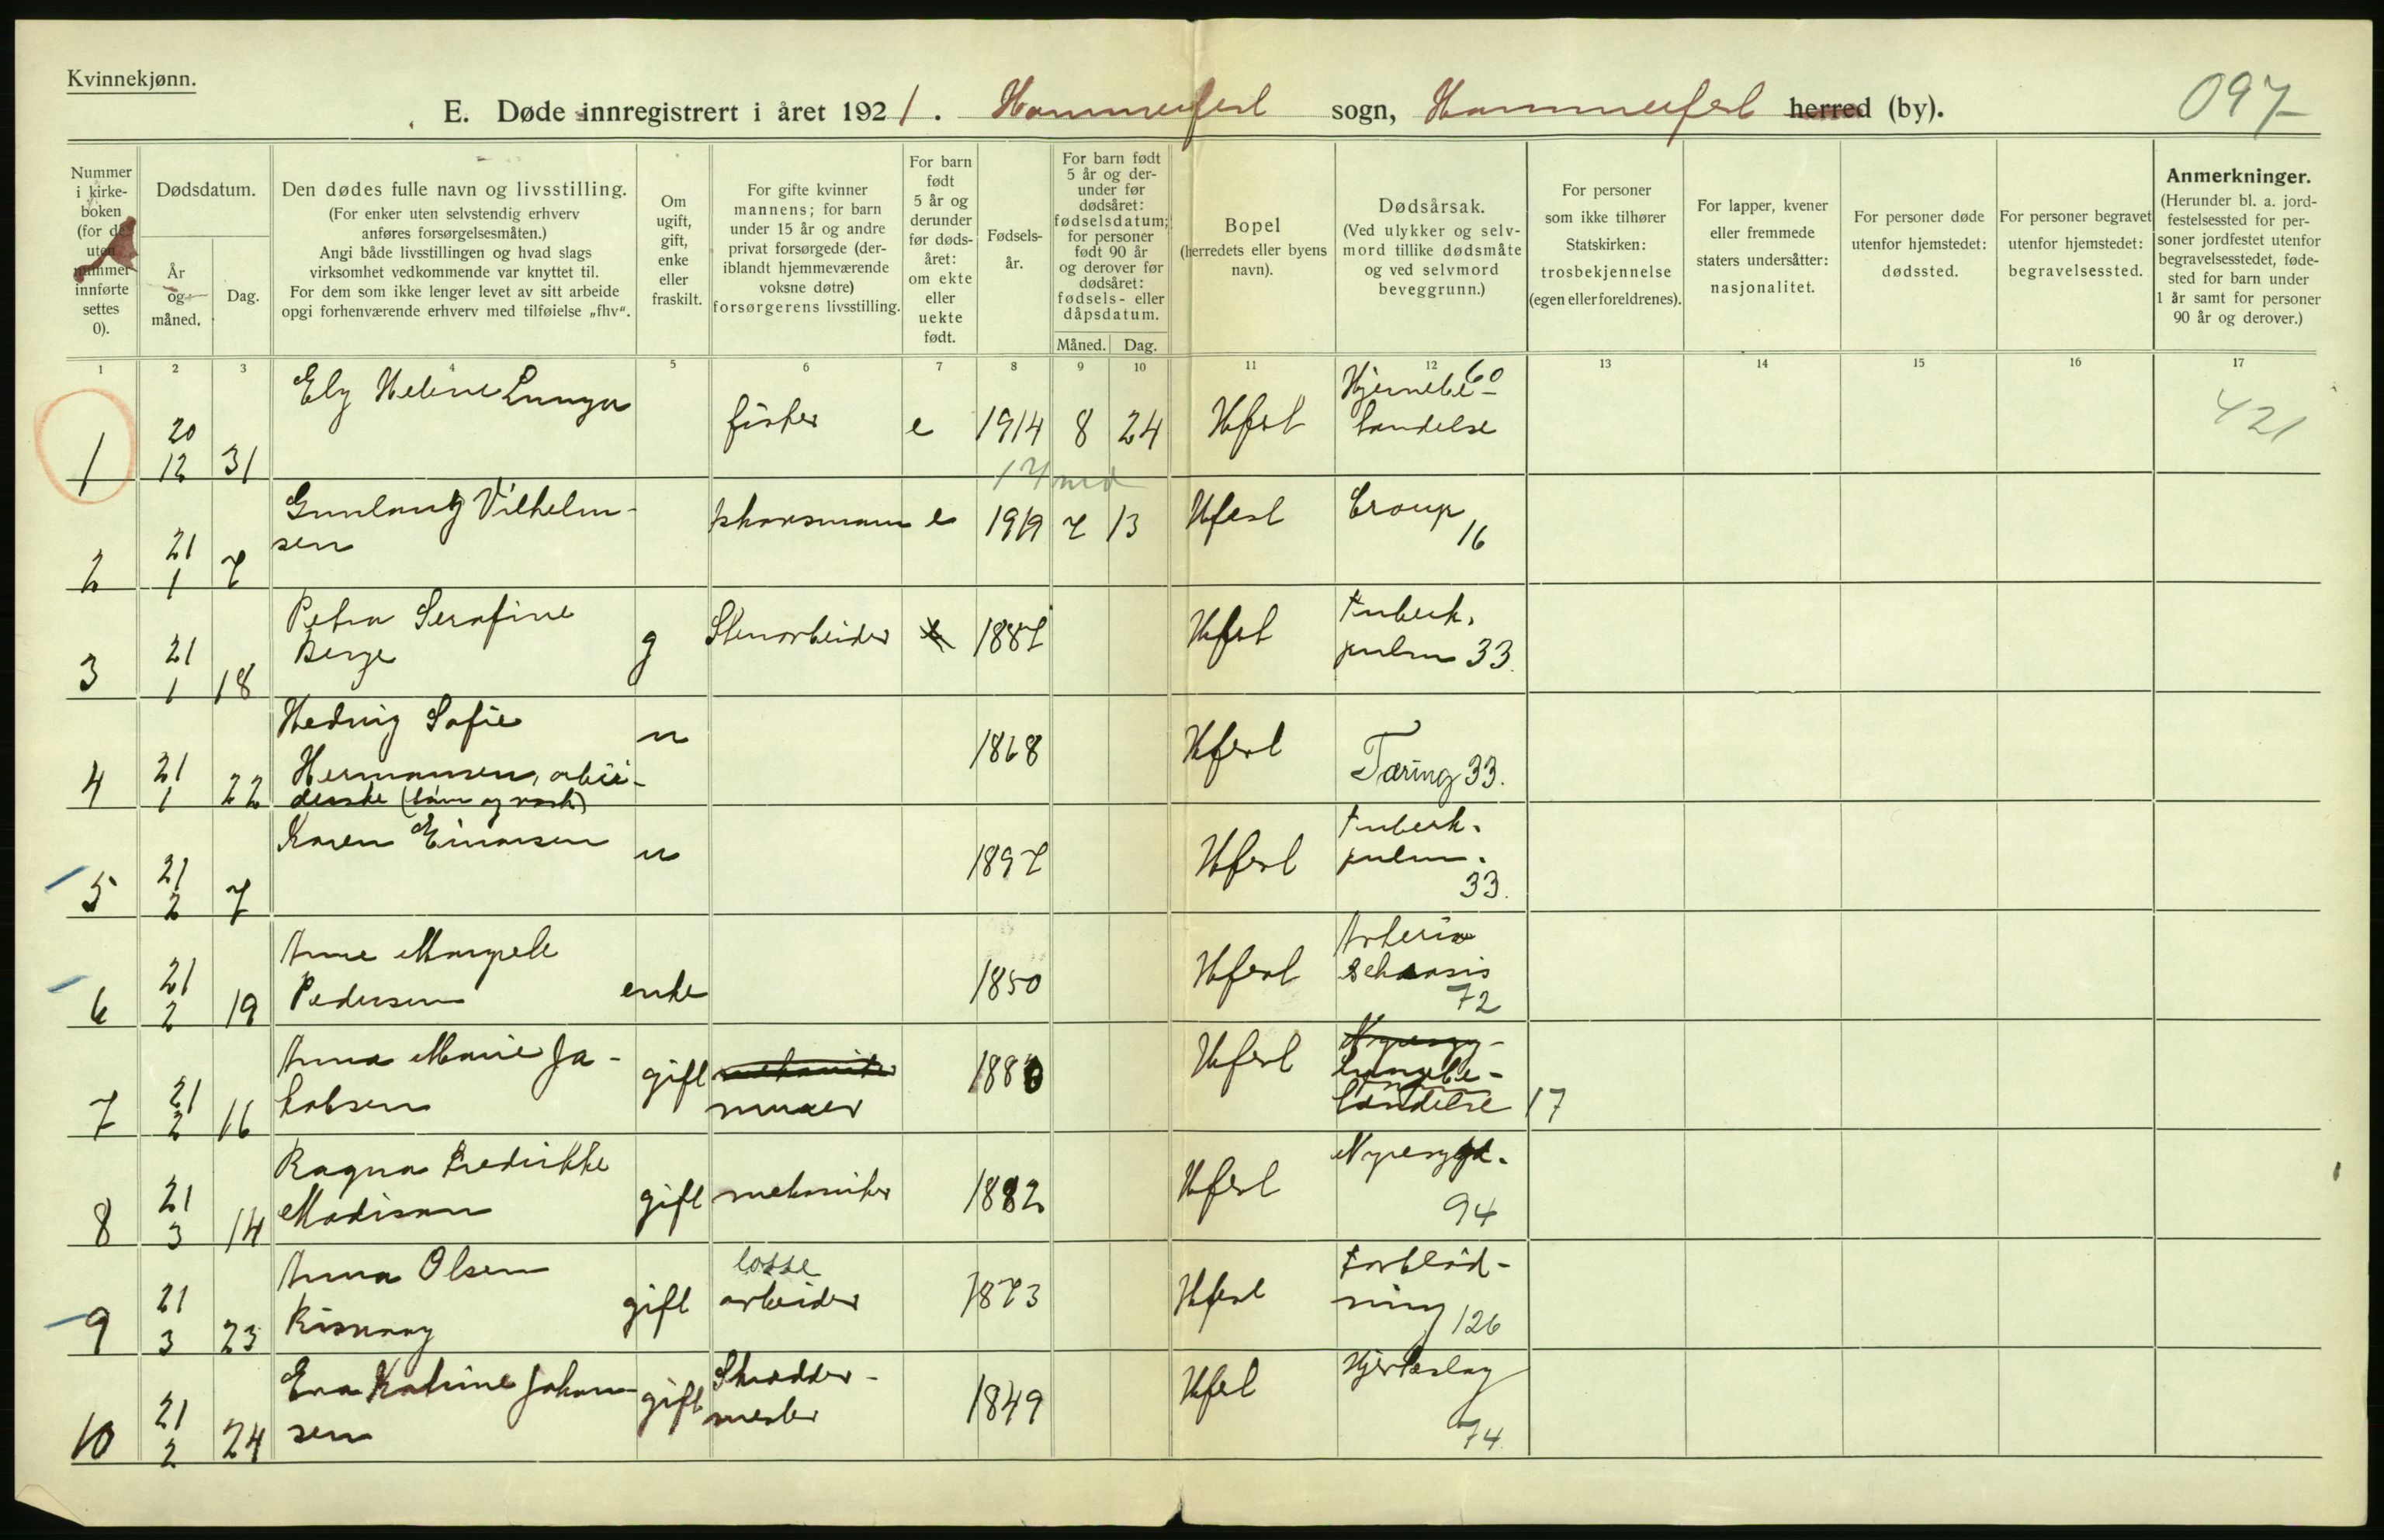 Kvinnekjønn.
E. Døde innregistrert i året 1921. Hammerfest sogn, Hammerfest herred (by).
097
Nummer i kirke-boken (for de uten nummer innførte settes 0).
Dødsdatum.
År og måned.
Dag.
Den dødes fulle navn og livsstilling.
(For enker uten selvstendig erhverv
anføres forsørgelsesmåten.)
Angi både livsstillingen og hvad slags
virksomhet vedkommende var knyttet til.
For dem som ikke lenger levet av sitt arbeide
opgi forhenværende erhverv med tilføielse „fhv“.
Om ugift, gift, enke eller fraskilt.
For gifte kvinner
mannens; for barn
under 15 år og andre
privat forsørgede (der-
iblandt hjemmeværende
voksne døtre)
forsørgerens livsstilling.
For barn
født
5 år og
derunder
før døds-
året:
om ekte
eller
uekte
født.
Fødsels-
år.
For barn født
5 år og der-
under før
dødsåret:
fødselsdatum;
for personer
født 90 år
og derover før
dødsåret:
fødsels- eller
dåpsdatum.
Måned. Dag.
Bopel
(herredets eller byens
navn).
Dødsårsak.
(Ved ulykker og selv-
mord tillike dødsmåte
og ved selvmord
beveggrunn.)
For personer
som ikke tilhører
Statskirken:
trosbekjennelse
(egen eller foreldrenes).
For lapper, kvener
eller fremmede
staters undersåtter:
nasjonalitet.
For personer døde
utenfor hjemstedet:
dødssted.
For personer begravet
utenfor hjemstedet:
begravelsessted.
Anmerkninger.
(Herunder bl. a. jord-
festelsessted for per-
soner jordfestet utenfor
begravelsesstedet, føde-
sted for barn under
1 år samt for personer
90 år og derover.)
1 2 3 4 5 6 7 8 9 10 11 12 13 14 15 16 17
1 20 12 31 Ely Helene fisker e 1914 8 24 Hfest Hjernebe-
tendelse 60 421
17 md
2 21 1 7 Gunlaug Vilhelm-
sen e 1919 7 13 Hfest Croup 16
3 21 1 18 Petra Serafine
Berge g Stenarbeider e 1887 Hfest tuberk.
pulm 33.
4 21 1 22 Hedvig Sofie
Hermansen, arbei-
derske u 1868 Hfest Tæring 33.
5 21 2 7 Karen Einarsen u 1897 Hfest tuberk.
pulm. 33.
6 21 2 19 Anne Margrete
Pedersen enke 1850 Hfest Arterio
72
7 21 2 16 Anna Marie Ja-
kobsen gift mekaniker
murer 1880 Hfest Nyresyg-
Lungebe-
tændelse 17
8 21 3 14 Ragna Fredrikke
Madisen gift mekaniker 1882 Hfest Nyresygd. 94
9 21 3 23 Anna Olsen
gift losse
arbeider 1873 Hfest Forblød-
ning 126
10 21 2 24 Eva Katrine Johan-
sen gift Skrædder-
mester 1849 Hfest Hjerteslag 74.